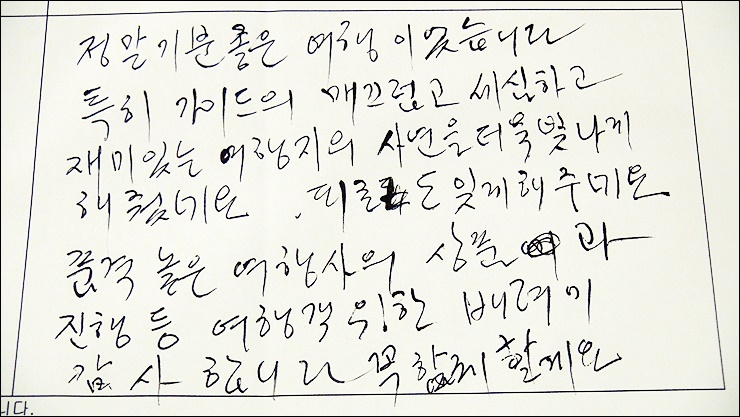 정말 기분 좋은 여행이었습니다
특히 가이드의 매끄럽고 세심하고
재미있는 여행지의 사연을 더욱 빛나게
해줬네요. 피로도 잊게 해주네요
품격 높은 여행사의 상품과
진행 등 여행객 위한 배려에
감사합니다 꼭 함께 할게요
니다.